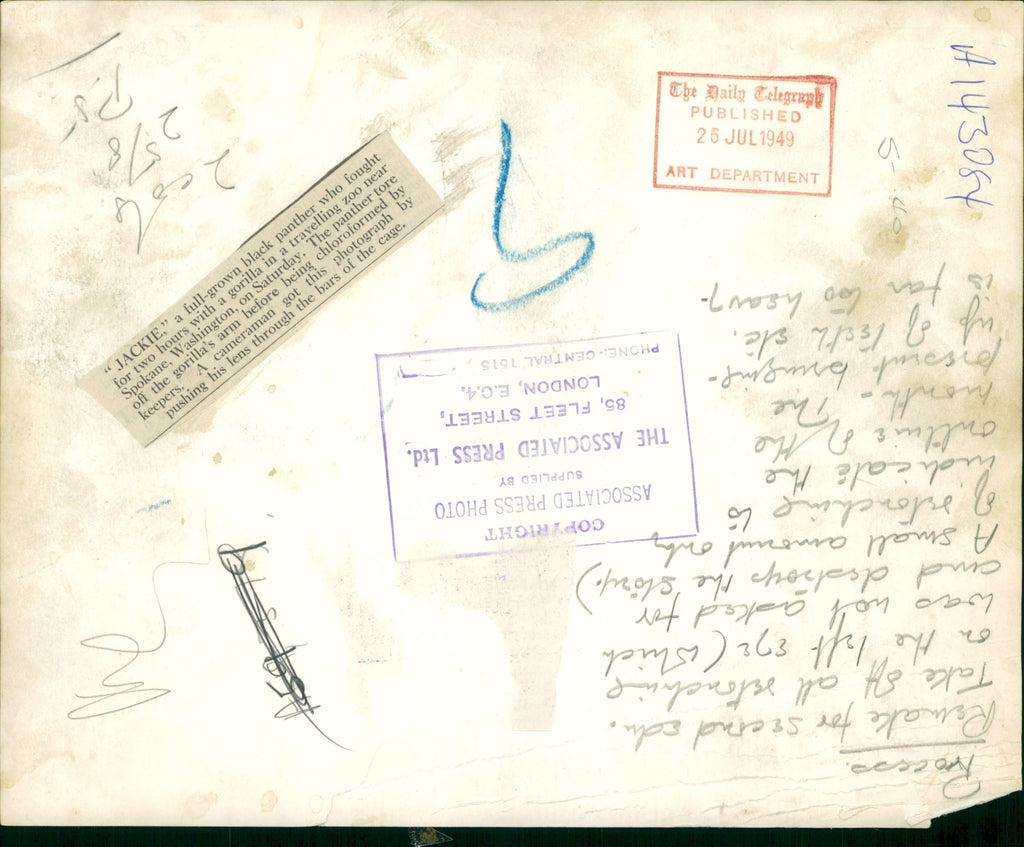 The Daily Telegraph
PUBLISHED
26 JUL 1949
ART DEPARTMENT
A143064
5-40
"JACKIE," a full-grown black panther who fought
for two hours with a gorilla in a travelling zoo near
Spokane, Washington, on Saturday. The panther tore
off the gorilla's arm before being chloroformed by
keepers. A cameraman got this photograph by
pushing his lens through the bars of the cage.
COPYRIGHT
ASSOCIATED PRESS PHOTO
SUPPLIED BY
THE ASSOCIATED PRESS Ltd.
85, FLEET STREET,
LONDON, E.C.4.
PHONE:- CENTRAL 1515
Process.
Remake for second edn.
Take off all retouching
on the left eye (which
was not asked for
and destroys the story.)
A small amount only
of retouching to
indicate the
outline of the
mouth - The
present bringing-
up of teeth etc.
is far too heavy.